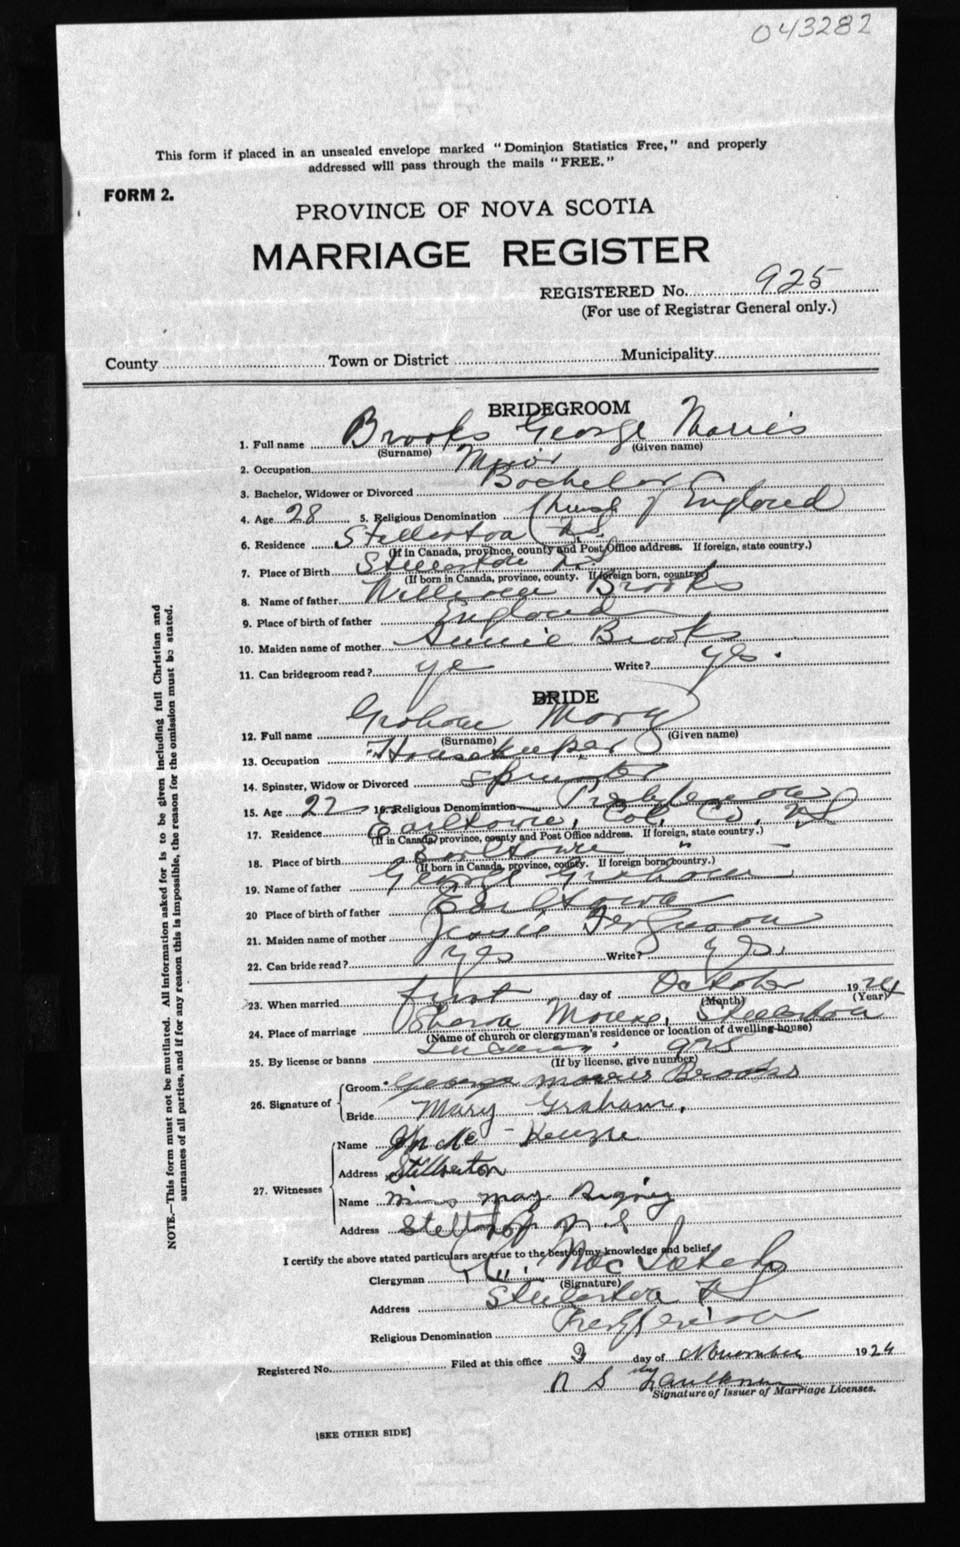 043282
This form if placed in an unsealed envelope marked "Dominion Statistics Free," and properly
addressed will pass through the mails "FREE."
FORM 2.
PROVINCE OF NOVA SCOTIA
MARRIAGE REGISTER
REGISTERED No. 925
(For use of Registrar General only.)
County Town or District Municipality
BRIDEGROOM
1. Full name Brooks George Morris
(Surname) (Given name)
2. Occupation
3. Bachelor, Widower or Divorced Bachelor
4. Age 28 5. Religious Denomination Church of England
6. Residence Stellarton N.S.
(If in Canada, province, county and Post Office address. If foreign, state country.)
7. Place of Birth Stellarton N.S
(If born in Canada, province, county. If foreign born, country)
8. Name of father William Brooks
9. Place of birth of father England
10. Maiden name of mother Annie Brooks
11. Can bridegroom read? ye Write? yes.
BRIDE
12. Full name Graham Mary
(Surname) (Given name)
13. Occupation Housekeeper
14. Spinster, Widow or Divorced Spinster
15. Age 22 16. Religious Denomination
17. Residence Earltown, Col. Co, NS
(If in Canada, province, county and Post Office address. If foreign, state country.)
18. Place of birth Earltown "
(If born in Canada, province, county. If foreign born, country.)
19. Name of father George Graham
20 Place of birth of father Earltown
21. Maiden name of mother Jessie Ferguson
22. Can bride read? yes Write? yes.
23. When married first day of October 1924
(Month) (Year)
24. Place of marriage Stellarton
(Name of church or clergyman's residence or location of dwelling-house)
25. By license or banns 925
(If by license, give number)
26. Signature of Groom George Morris Brooks
Bride Mary Graham.
27. Witnesses Name Mc Kenzie
Address Stellarton
Name Miss May
Address N S
I certify the above stated particulars are true to the best of my knowledge and belief.
Clergyman
(Signature)
Address Stellarton NS
Religious Denomination
Registered No. Filed at this office day of November 1924
N S Faulkner
Signature of Issuer of Marriage Licenses.
[SEE OTHER SIDE]
NOTE.—This form must not be mutilated. All information asked for is to be given including full Christian and
surnames of all parties, and if for any reason this is impossible, the reason for the omission must be stated.